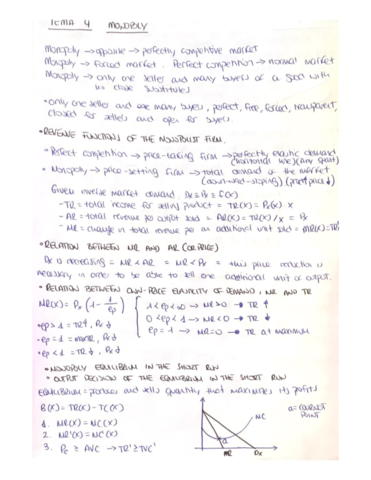 TEMA 4 MONOPOLY
Monopoly → opposite → perfectly competitive market
Monopoly → forced market. Perfect competition → normal market
Monopoly → only one seller and many buyers of a good with
no close substitutes
• only one seller and are many buyers, perfect, free, forced, transparent,
closed for sellers and open for buyers.
• REVENUE FUNCTIONS OF THE MONOPOLIST FIRM.
• Perfect competition → price-taking firm → perfectly elastic demand
(horizontal line) (any quant)
• Monopoly → price-setting firm → total demand of the market
(downward-sloping)
Given inverse market demand Dx ≡ Px = f(x)
- TR = total income for selling product = TR(X) = Px(X) · X
- AR = total revenue per output sold = AR(X) = TR(X)/X = Px
- MR = change in total revenue per an additional unit sold = MR(X) = TR'
• RELATION BETWEEN MR AND AR (OR PRICE)
Dx is decreasing = MR < AR = MR < Px = this price reduction is
necessary in order to be able to sell one additional unit of output.
• RELATION BETWEEN OWN-PRICE ELASTICITY OF DEMAND, MR AND TR
MR(X) = Px (1 - 1/ep)
1 < ep < ∞ → MR > 0 → TR ↑
0 < ep < 1 → MR < 0 → TR ↓
ep = 1 → MR = 0 → TR at maximum
• ep > 1 = TR↑, Px ↓
- ep = 1 = max TR, Px ↓
• ep < 1 = TR ↓, Px ↓
• MONOPOLY EQUILIBRIUM IN THE SHORT RUN
• OUTPUT DECISION OF THE EQUILIBRIUM IN THE SHORT RUN
EQUILIBRIUM = produces and sells quantity that maximizes its profits
B(X) = TR(X) - TC(X)
1. MR(X) = MC(X)
2. MR'(X) = MC(X)
3. Pc ≥ AVC → TR' ≥ TVC'
MC
a
MR
Dx
a = COURNOT
POINT